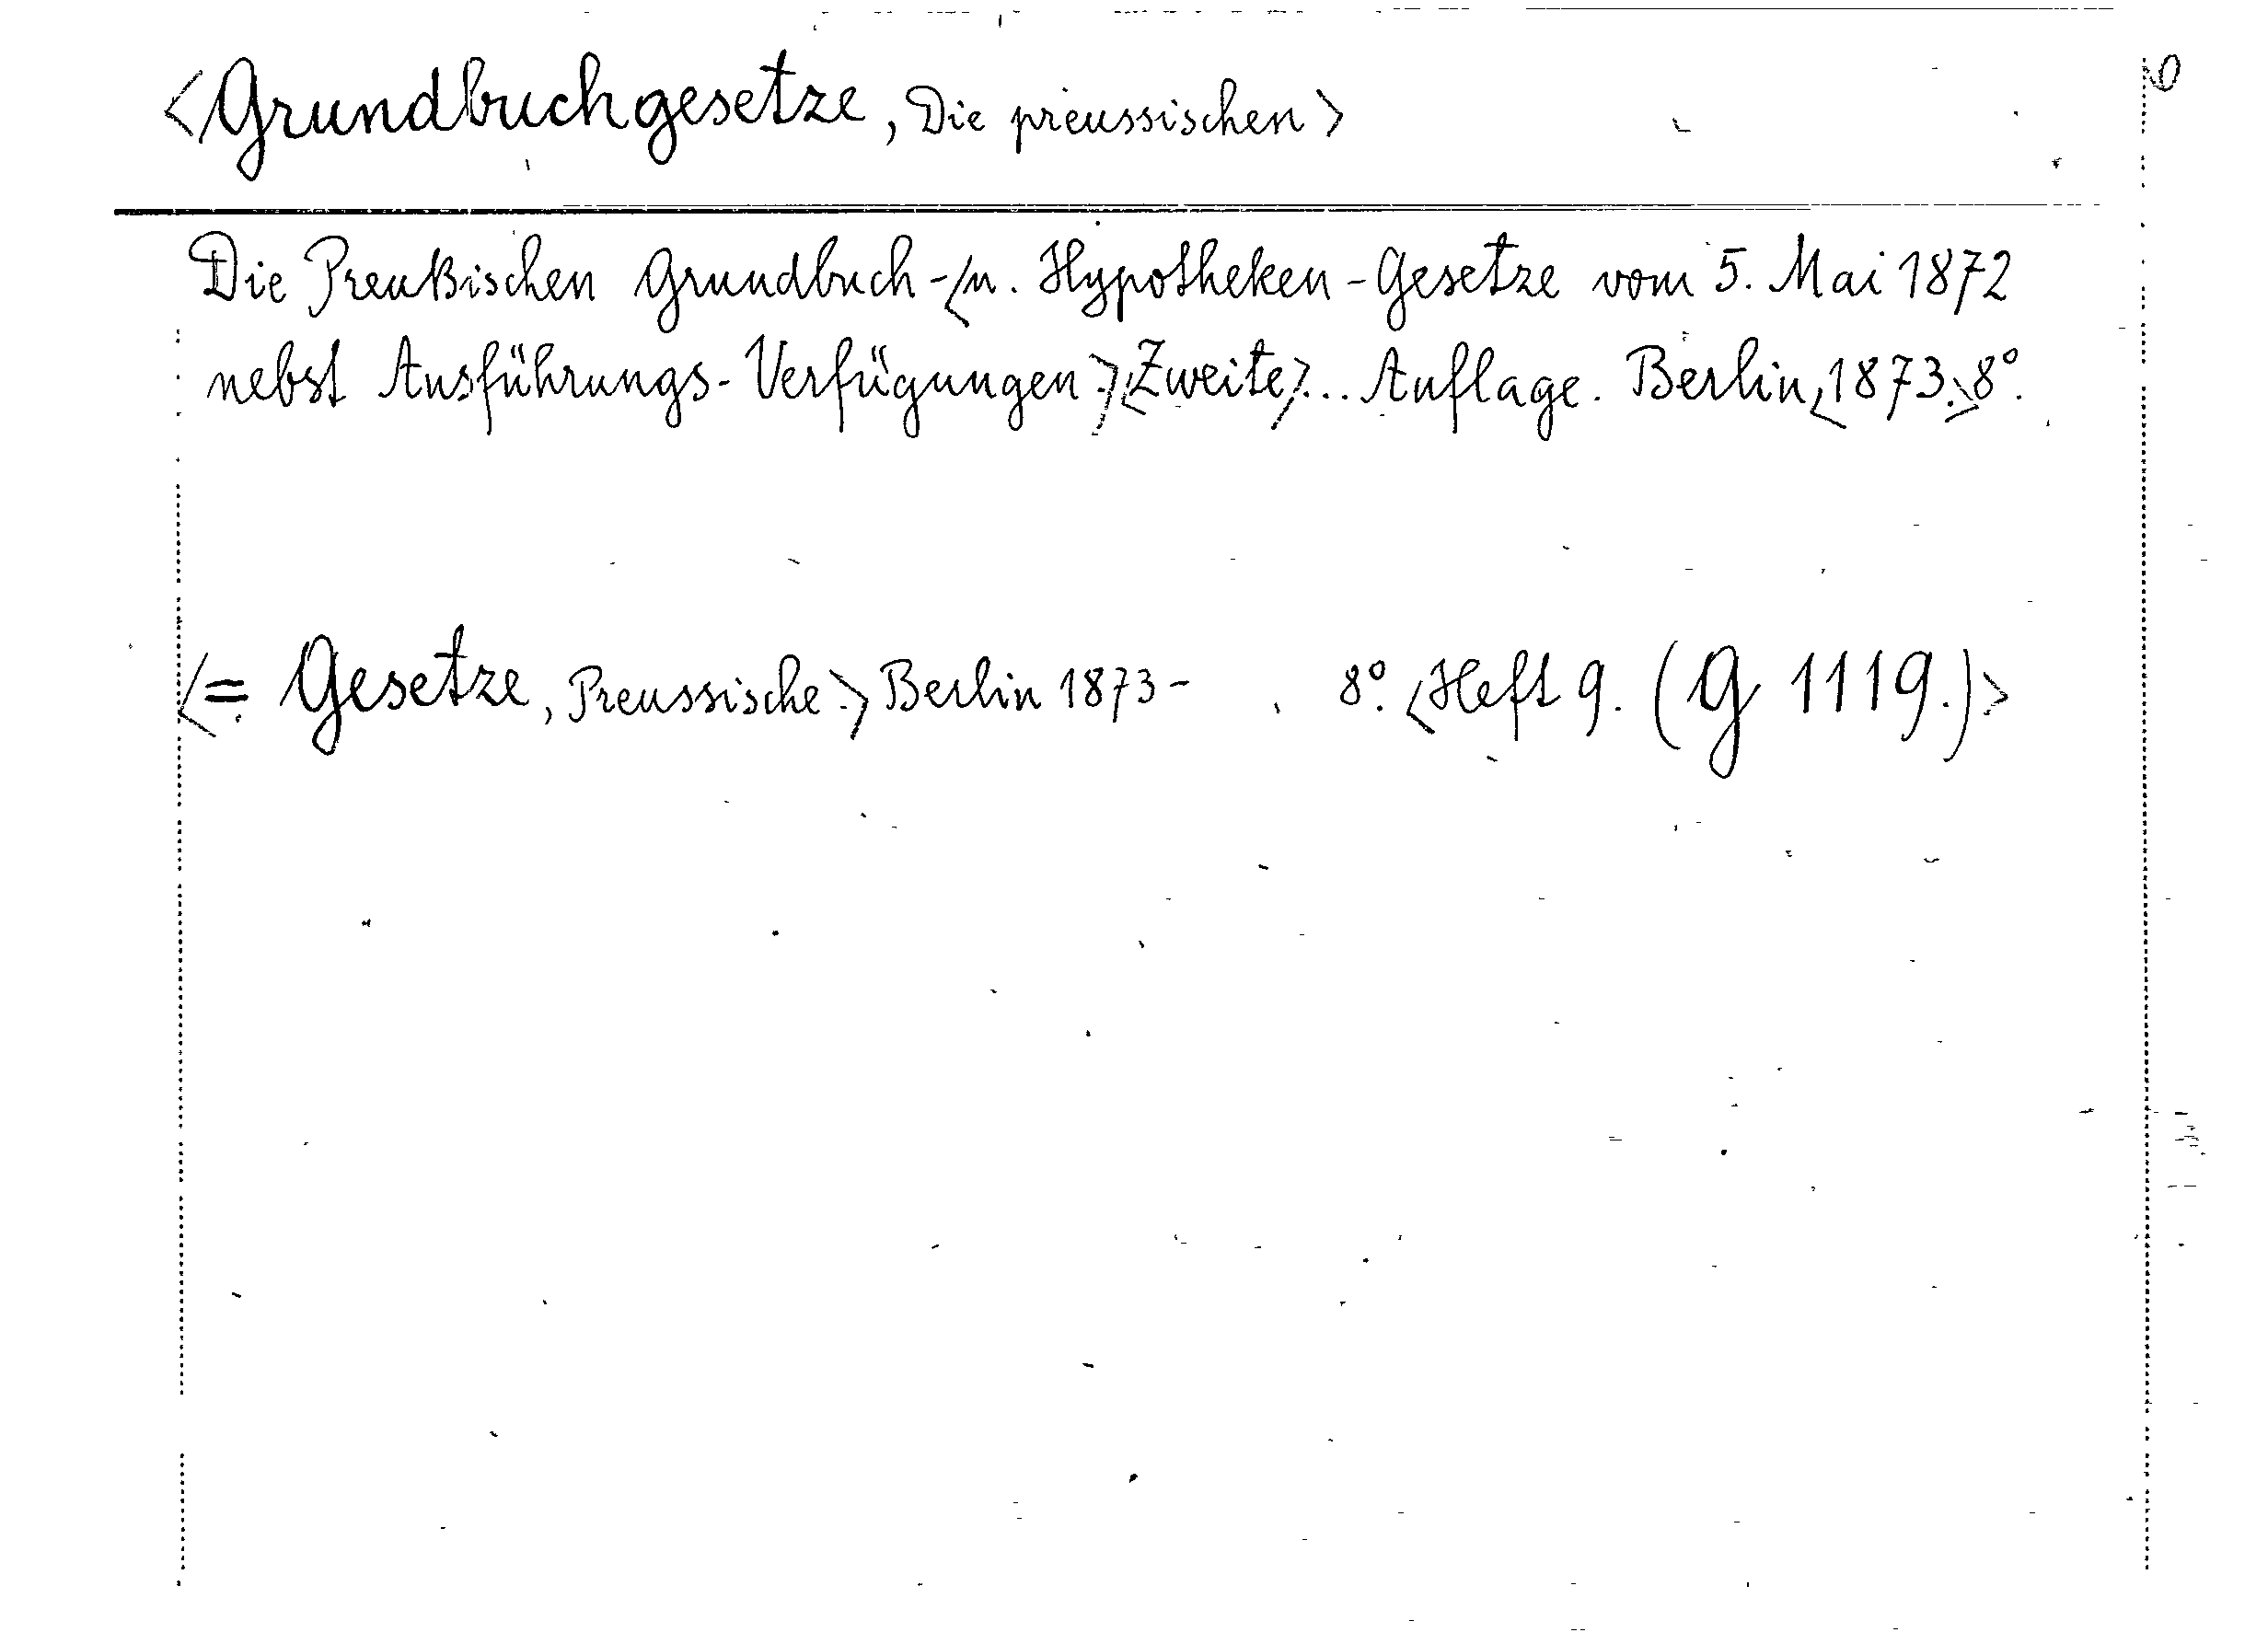 <Grundbuchgesetze, Die preussischen> 0
Die Preußischen Grundbuch-<u. Hypotheken-Gesetze vom 5. Mai 1872
nebst Ausführungs-Verfügungen.><Zweite>... Auflage. Berlin,<1873.>8°.
<= Gesetze, Preussische.> Berlin 1873- . 8°. <Heft 9. (G 1119.)>